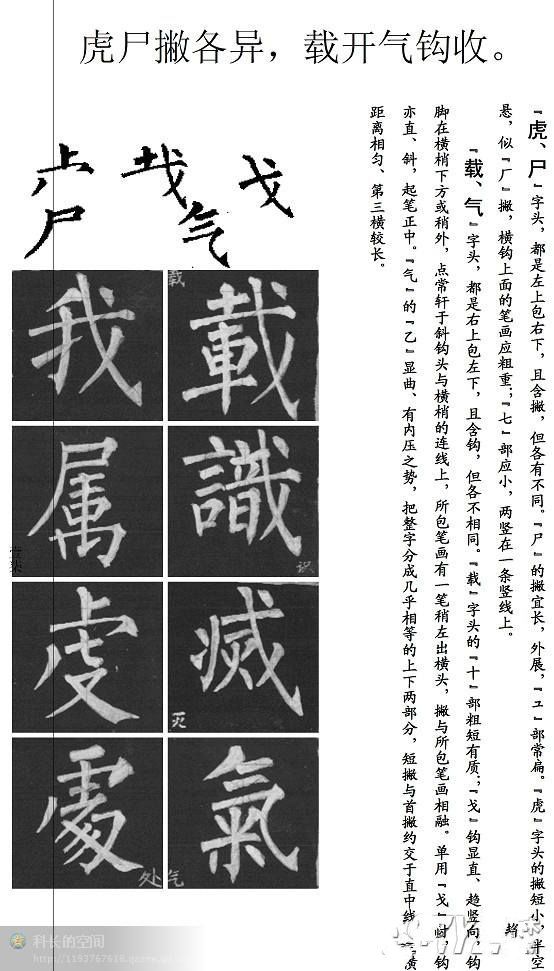 虎尸撇各异，载开气钩收。
『虎、尸』字头，都是左上包右下，且含撇，但各有不同。『尸』的撇宜长，外展，『コ』部常扁。『虎』字头的撇短小，半空
悬，似『厂』撇，横钩上面的笔画应粗重；『七』部应小，两竖在一条竖线上。
『载、气』字头，都是右上包左下，且含钩，但各不相同。『载』字头的『十』部粗短有质；『戈』钩显直、趋竖向，钩
脚在横梢下方或稍外，点常轩于斜钩头与横梢的连线上，所包笔画有一笔稍左出横头，撇与所包笔画相融。单用『戈』时，钩
亦直、斜，起笔正中。『气』的『乙』显曲、有内压之势，把整字分成几乎相等的上下两部分，短撇与首撇约交于直中线，横
距离相匀、第三横较长。
戈
尸 气
載 载
我
識 识
属
滅 灭
虔
氣 气
處 处
壹柒
科长的空间